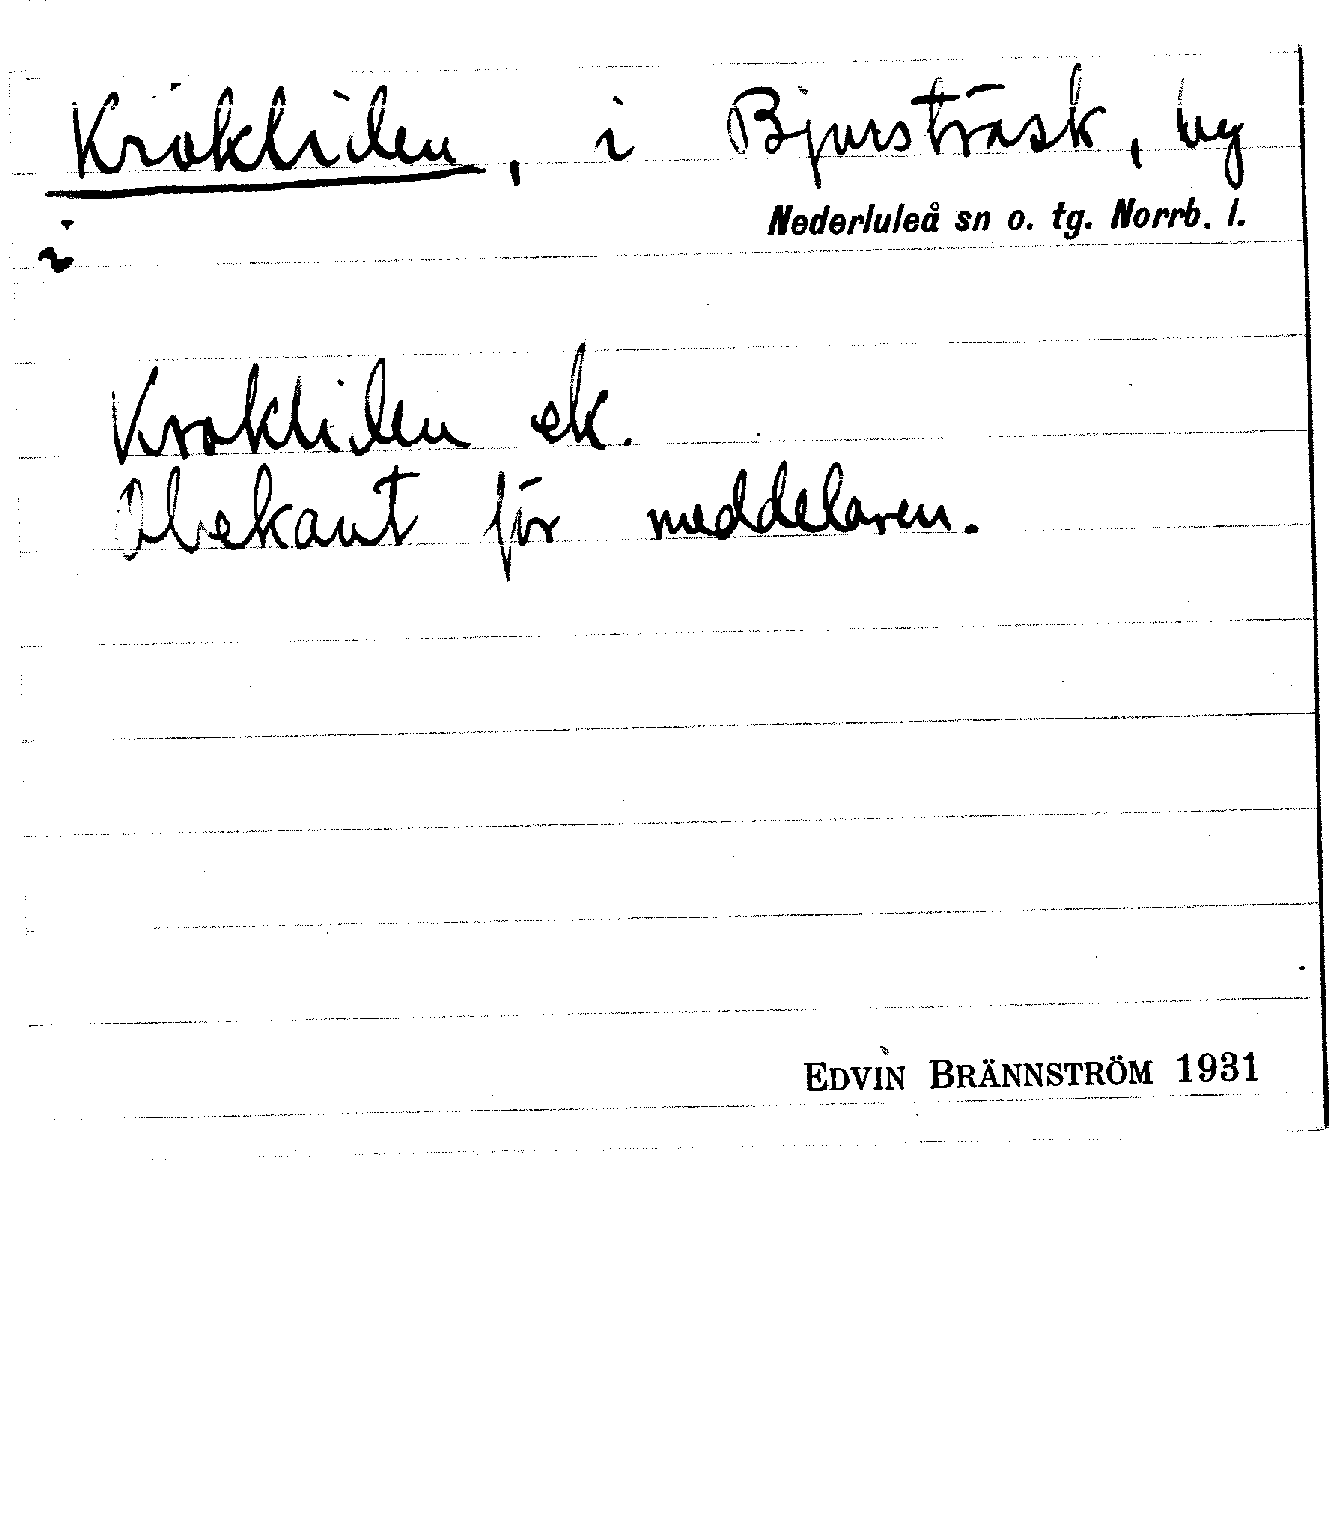 Krokliden, i Bjursträsk, by
i
Nederluleå sn o. tg. Norrb. l.
Krokliden ek.
Obekant för meddelaren.
EDVIN BRÄNNSTRÖM 1931